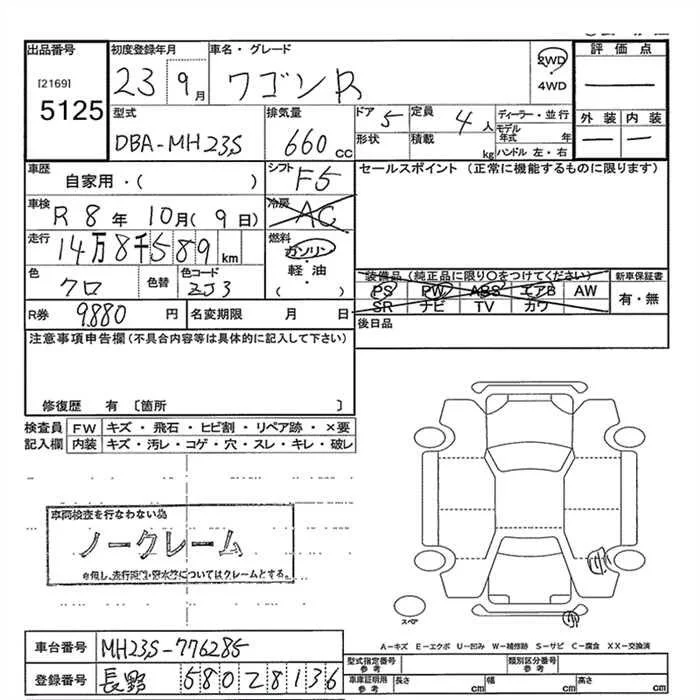 出品番号 初度登録年月 車名・グレード 評価点
[2169] 23 9月 ワゴンR 2WD
5125 4WD
型式 排気量 ドア 5 定員 4人 ディーラー・並行 外装 内装
DBA-MH23S 660cc 形状 積載 kg モデル年式 年
ハンドル 左・右
車歴 シフト F5 セールスポイント (正常に機能するものに限ります)
自家用・( )
車検 R8年 10月(9日) 冷房 AC
走行 14万8千589km 燃料 ガソリン
軽油
( )
色 クロ 色替 色コード ZJ3
装備品(純正品に限り○をつけてください) 新車保証書
PS PW ABS エアB AW 有・無
SR ナビ TV カワ
R券 9880円 名変期限 月 日 後日品
注意事項申告欄(不具合内容等は具体的に記入して下さい)
修復歴 有 〔箇所 〕
検査員 FW キズ・飛石・ヒビ割・リペア跡・×要
記入欄 内装 キズ・汚レ・コゲ・穴・スレ・キレ・破レ
車両検査を行なわない為
ノークレーム
についてはクレームとする。
スペア
A-キズ E-エクボ U-凹み W-補修跡 S-サビ C-腐食 XX-交換済
車台番号 MH23S-776285 型式指定番号 参考 類別区分番号 参考
登録番号 長野 580 2 8136 車庫証明用 参考 長さ cm 幅 cm 高さ cm